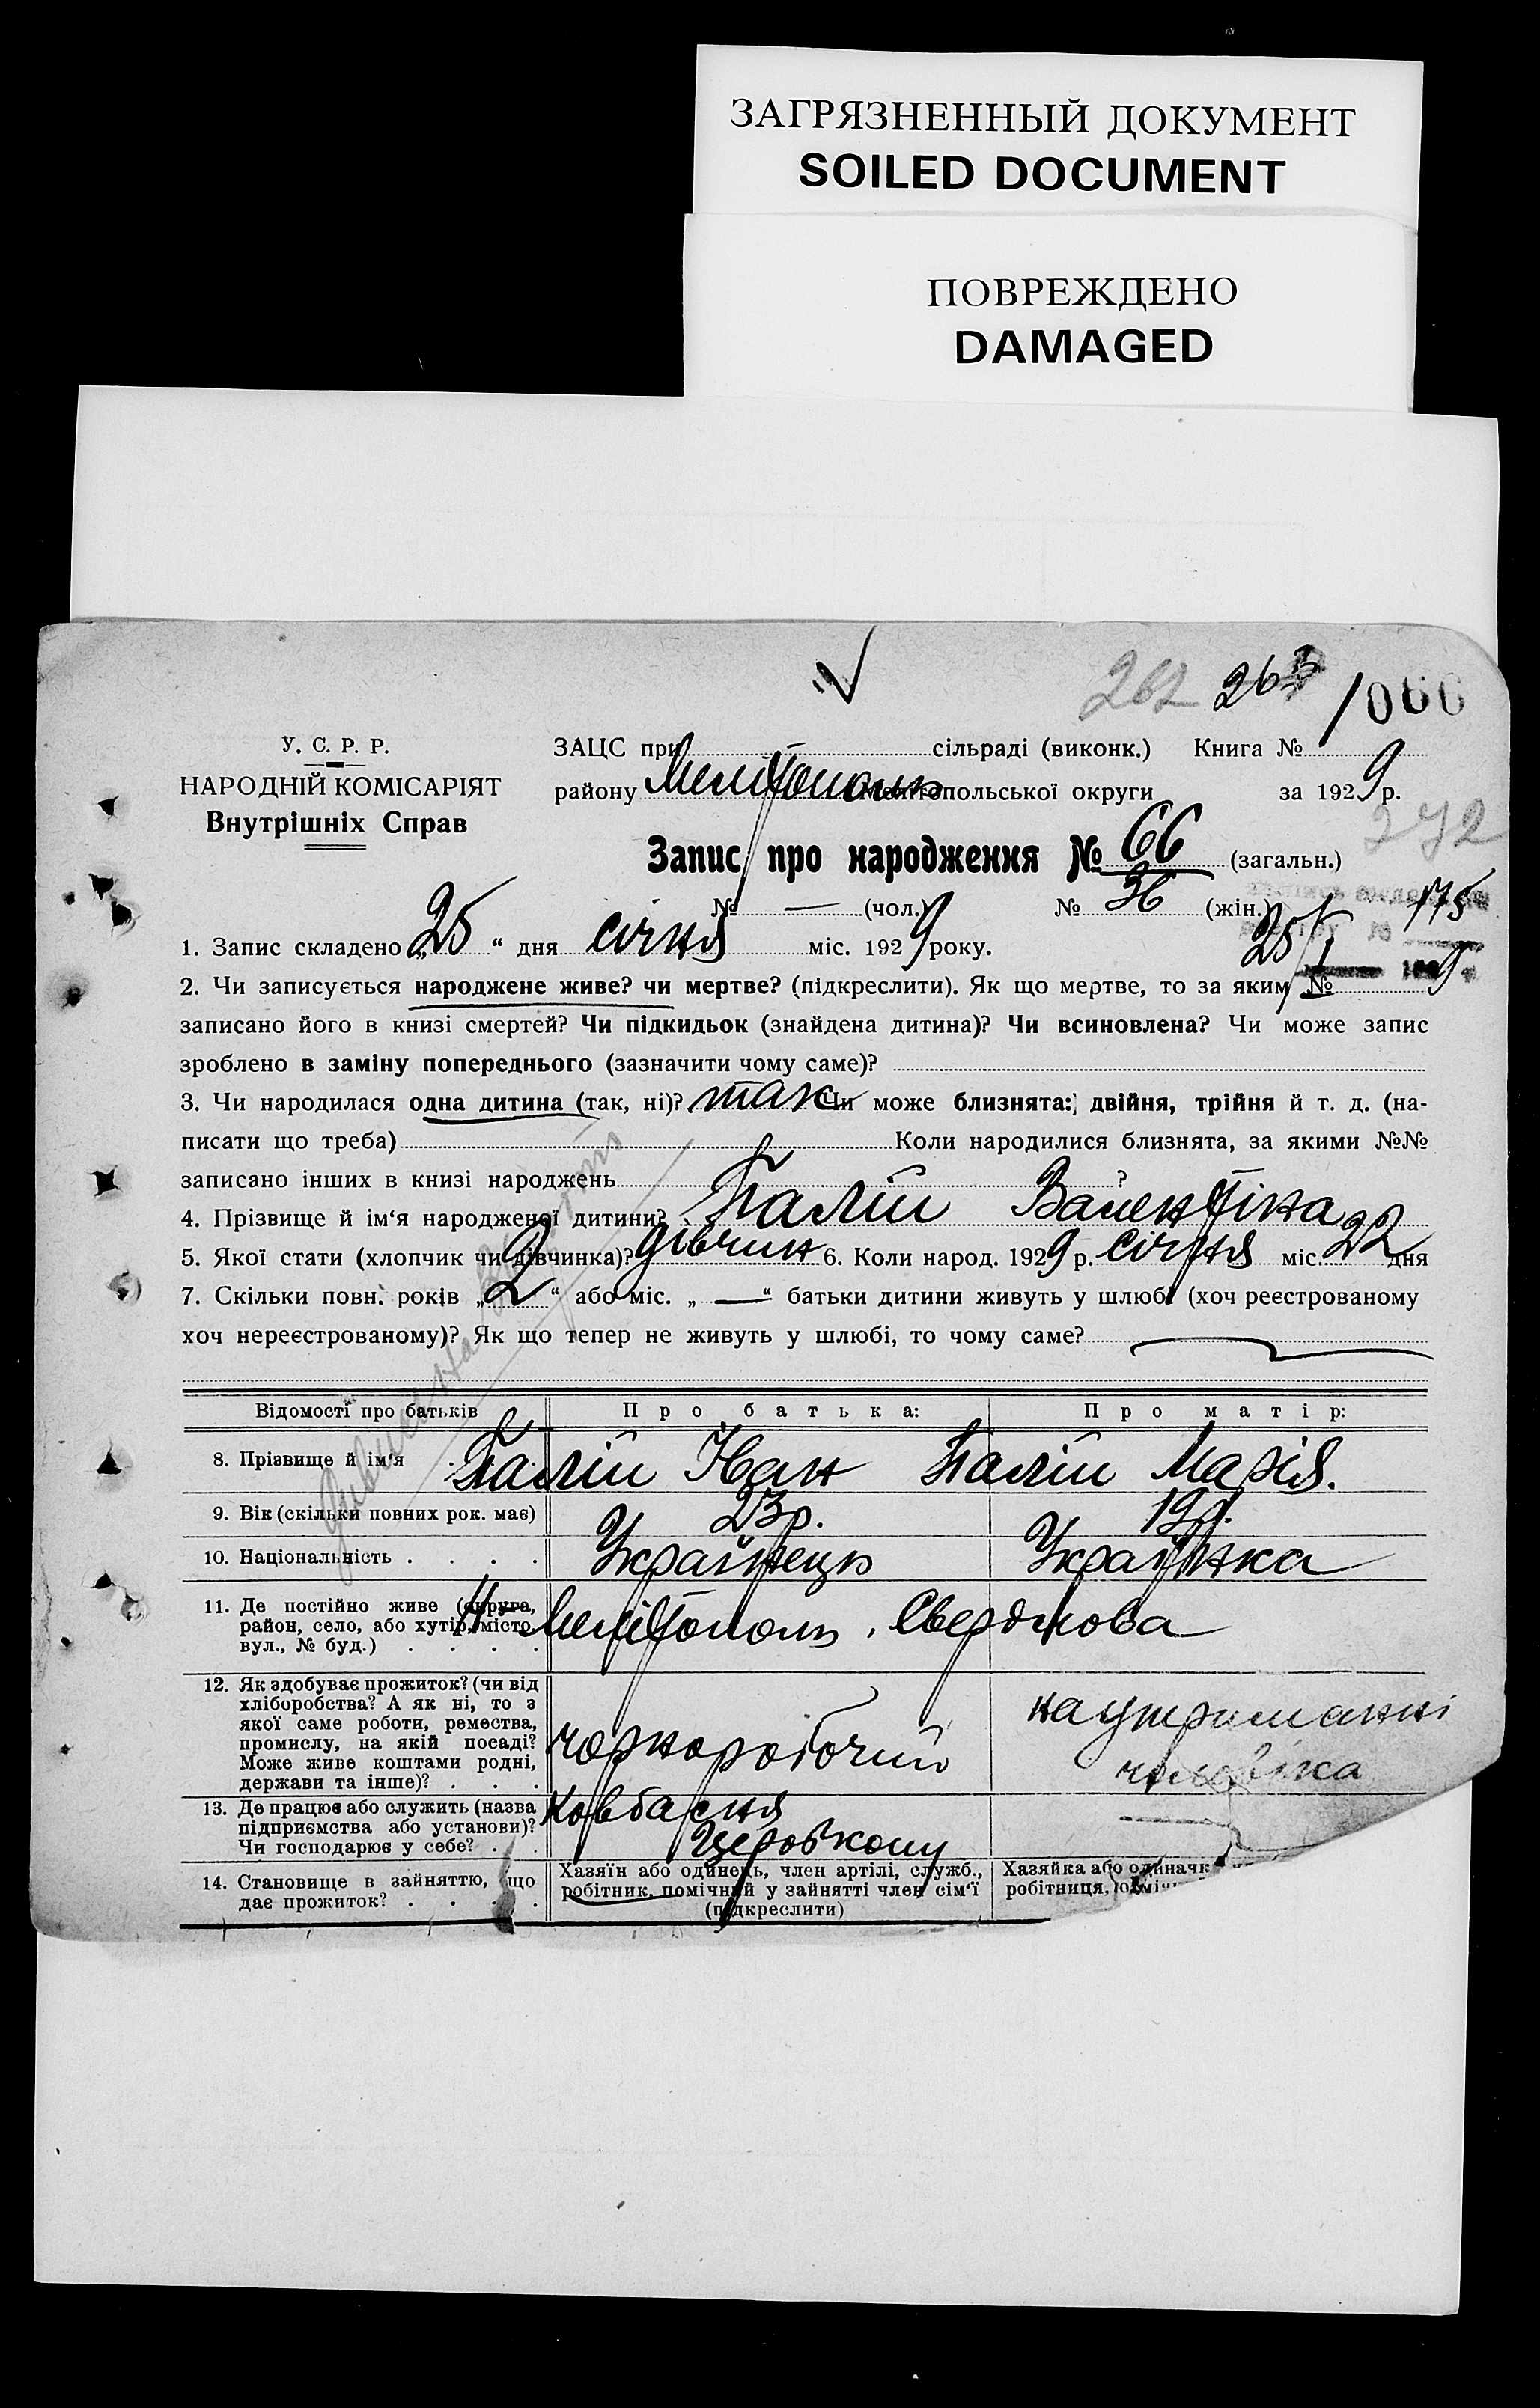 ЗАГРЯЗНЕННЫЙ ДОКУМЕНТ
SOILED DOCUMENT
ПОВРЕЖДЕНО
DAMAGED
262 263 1066
У. С. Р. Р.
НАРОДНІЙ КОМІСАРІЯТ
Внутрішніх Справ
ЗАЦС при сільраді (виконк.) Книга №
району Мелітополь Мелітопольської округи за 1929 р.
272
Запис про народження № 66 (загальн.)
№ — (чол.) № 36 (жін.)
175
25/I 9
1. Запис складено „25“ дня січня міс. 1929 року.
2. Чи записується народжене живе? чи мертве? (підкреслити). Як що мертве, то за яким №
записано його в книзі смертей? Чи підкидьок (знайдена дитина)? Чи всиновлена? Чи може запис
зроблено в заміну попереднього (зазначити чому саме)?
3. Чи народилася одна дитина (так, ні)? так Чи може близнята: двійня, трійня й т. д. (на-
писати що треба) Коли народилися близнята, за якими №№
записано інших в книзі народжень ?
4. Прізвище й ім‘я народженої дитини? Палій Валентіна
5. Якої стати (хлопчик чи дівчинка)? дівчин 6. Коли народ. 1929 р. січня міс. 22 дня
7. Скільки повн. років „2“ або міс. „—“ батьки дитини живуть у шлюбі (хоч реєстрованому
хоч нереєстрованому)? Як що тепер не живуть у шлюбі, то чому саме?
Відомості про батьків Про батька: Про матір:
8. Прізвище й ім‘я Палій Іван Палій Марія.
9. Вік (скільки повних рок. має) 23 р. 19 р.
10. Національність Українець Українка
11. Де постійно живе (округа,
район, село, або хутір, місто,
вул., № буд.)
Мелітополь, Свердлова
12. Як здобуває прожиток? (чи від
хліборобства? А як ні, то з
якої саме роботи, ремества,
промислу, на якій посаді?
Може живе коштами родні,
держави та інше)?
чорноробочий
на утриманні
чоловіка
13. Де працює або служить (назва
підприємства або установи)?
Чи господарює у себе?
Ковбасня
14. Становище в зайняттю, що
дає прожиток?
Хазяїн або одинець, член артілі, служб.,
робітник, помічний у зайнятті член сім‘ї
(підкреслити)
Хазяйка або одиначк
робітниця,